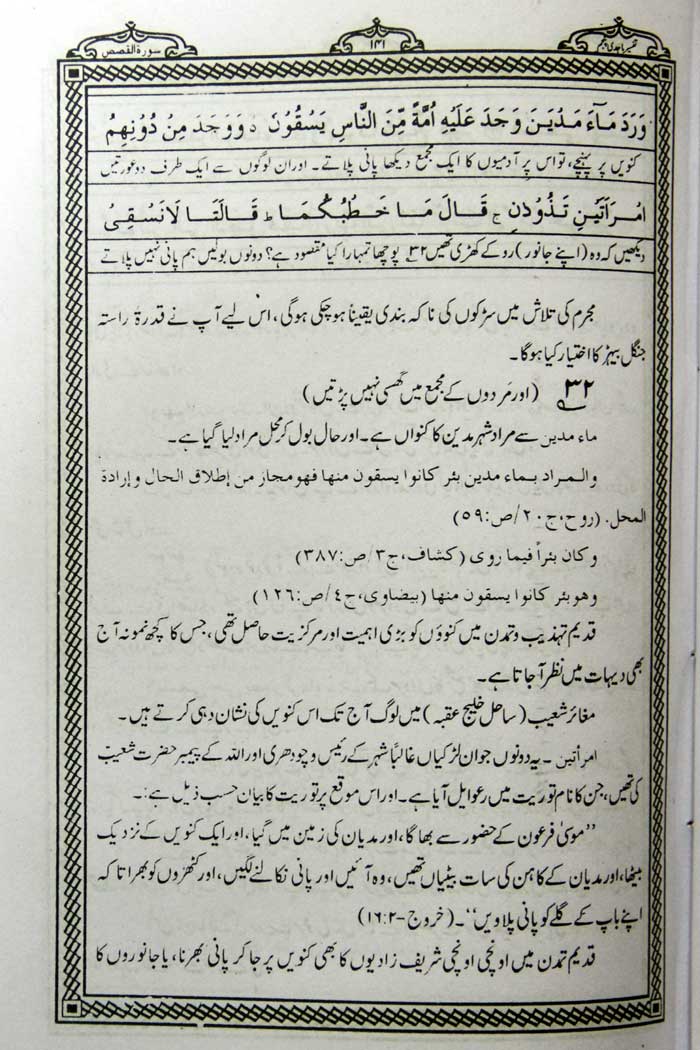 تفسیر ماجدی پنجم
۱۴۱
سورة القصص
وَرَدَ مَآءَ مَدْيَنَ وَجَدَ عَلَيْهِ اُمَّةً مِّنَ النَّاسِ يَسْقُوْنَ وَوَجَدَ مِنْ دُوْنِهِمُ
کنویں پر پہنچے، تو اس پر آدمیوں کا ایک مجمع دیکھا پانی پلاتے۔ اور ان لوگوں سے ایک طرف دو عورتیں
امْرَاَتَيْنِ تَذُوْدٰنِ ج قَالَ مَا خَطْبُكُمَا ط قَالَتَا لَا نَسْقِىْ
دیکھیں کہ وہ (اپنے جانور) روکے کھڑی تھیں ۳۲ پوچھا تمہارا کیا مقصود ہے؟ دونوں بولیں ہم پانی نہیں پلاتے
مجرم کی تلاش میں سڑکوں کی ناکہ بندی یقیناً ہوچکی ہوگی، اس لیے آپ نے قدرۃً راستہ
جنگل بیہڑ کا اختیار کیا ہوگا۔
۳۲ (اور مَردوں کے مجمع میں گھسی نہیں پڑتیں)
ماء مدین سے مراد شہر مدین کا کنواں ہے۔ اور حال بول کر محل مراد لیا گیا ہے۔
والمراد بماء مدين بئر كانوا يسقون منها فهو مجاز من إطلاق الحال وإرادة
المحل. (روح، ج۲۰/ص:۵۹)
وكان بئراً فيما روى (كشاف، ج۳/ص:۳۸۷)
وهو بئر كانوا يسقون منها (بيضاوى، ج٤/ص:١٢٦)
قدیم تہذیب وتمدن میں کنوؤں کو بڑی اہمیت اور مرکزیت حاصل تھی، جس کا کچھ نمونہ آج
بھی دیہات میں نظر آجاتا ہے۔
مغائر شعیب (ساحل خلیج عقبہ) میں لوگ آج تک اس کنویں کی نشان دہی کرتے ہیں۔
امرأتین۔ یہ دونوں جوان لڑکیاں غالباً شہر کے رئیس و چودھری اور اللہ کے پیمبر حضرت شعیبؑ
کی تھیں، جن کا نام توریت میں رعوایل آیا ہے۔ اور اس موقع پر توریت کا بیان حسب ذیل ہے:۔
’’موسیٰ فرعون کے حضور سے بھاگا، اور مدیان کی زمین میں گیا، اور ایک کنویں کے نزدیک
بیٹھا، اور مدیان کے کاہن کی سات بیٹیاں تھیں، وہ آئیں اور پانی نکالنے لگیں، اور کٹھروں کو بھرا تا کہ
اپنے باپ کے گلے کو پانی پلاویں‘‘۔ (خروج-۲:۱۶)
قدیم تمدن میں اونچی اونچی شریف زادیوں کا بھی کنویں پر جا کر پانی بھرنا، یا جانوروں کا